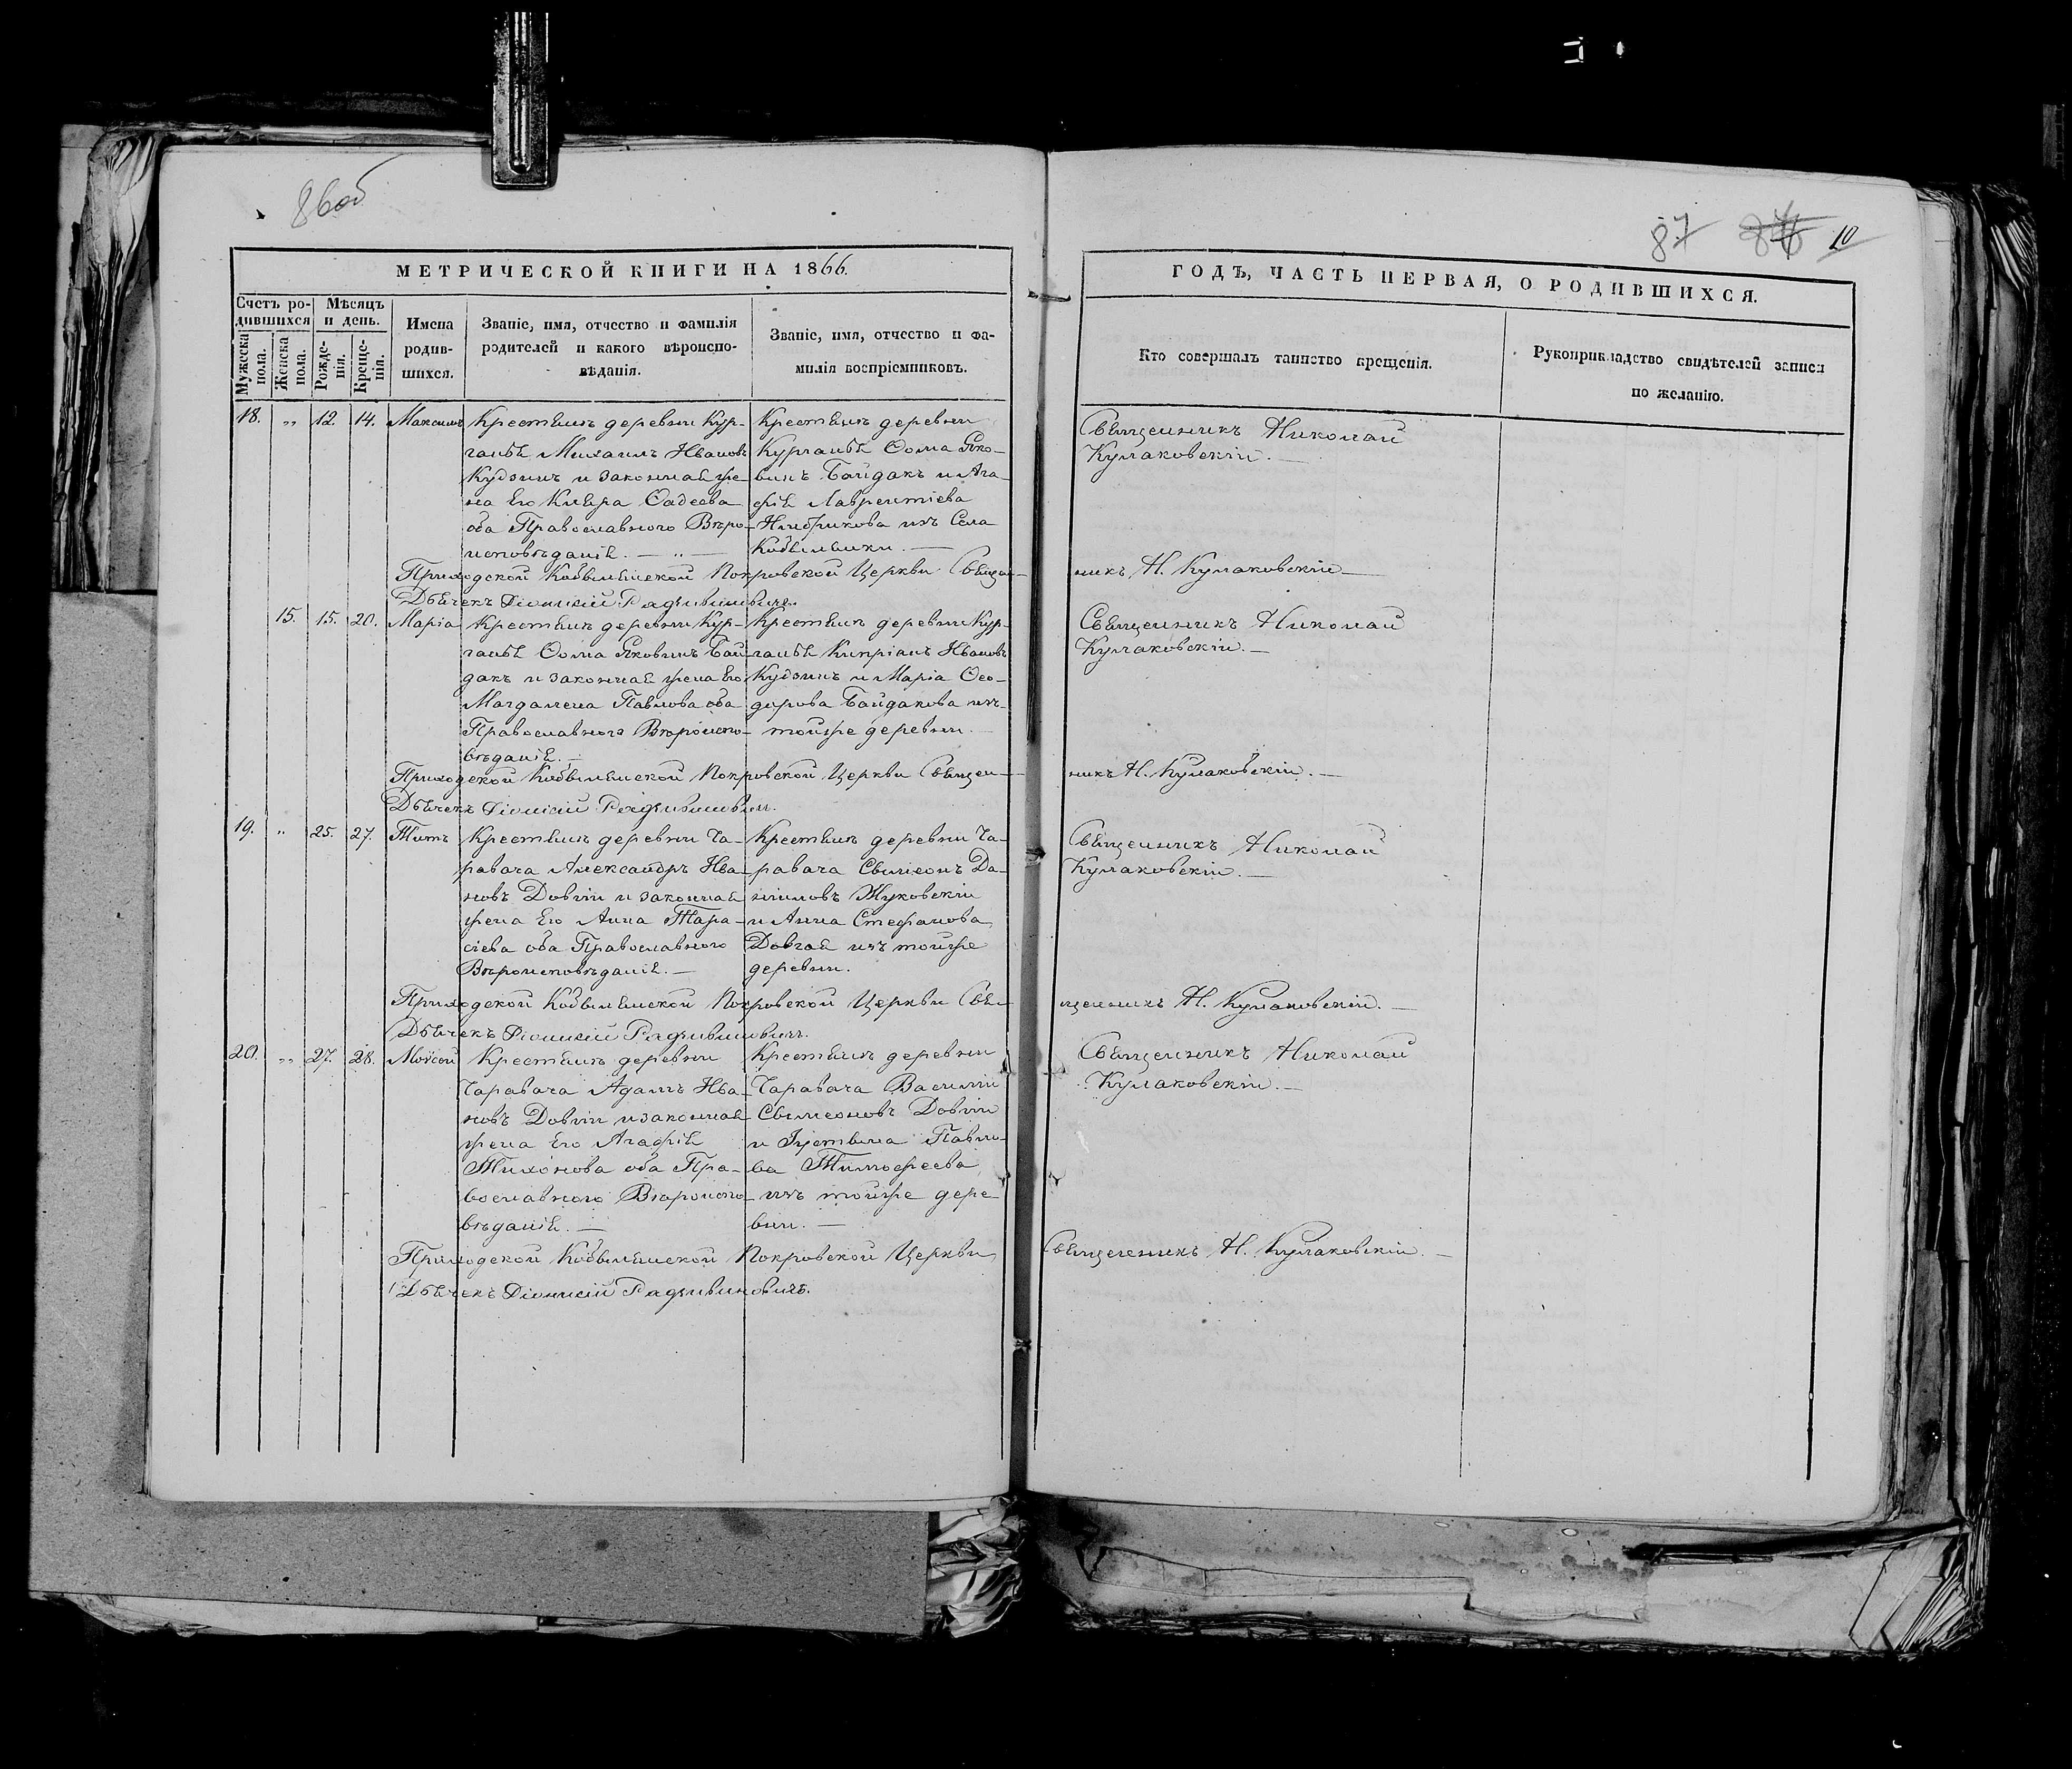 86об
87 10
МЕТРИЧЕСКОЙ КНИГИ НА 1866.
Счетъ ро-
дившихся
Мѣсяцъ
и день.
Мужеска
пола.
Женска
пола.
Рожде-
нія.
Креще-
нія.
Имена
родив-
шихся.
Званіе, имя, отчество и фамилія
родителей и какого вѣроиспо-
вѣданія.
Званіе, имя, отчество и фа-
милія воспріемниковъ.
ГОДЪ, ЧАСТЬ ПЕРВАЯ, О РОДИВШИХСЯ.
Кто совершалъ таинство крещенія.
Рукоприкладство свидѣтелей записи
по желанію.
18. „ 12. 14. Максимъ
Крестьянъ деревни Кур-
ганья Михаилъ Ивановъ
Кудзинъ и законная же-
на Его Клера Фадеева
оба Православного Вѣро-
исповѣданія. — „ —
Крестьянъ деревни
Курганья Фома Яко-
винъ Байдакъ и Ага-
фія Лаврентіева
изъ Села
Кобыльники. —
Священникъ Николай
Кулаковскій. —
Приходской Кобыльянской Покровской Церкви Священ-
никъ Н. Кулаковскій —
Дьячекъ Діонисій Радзивиновичъ.
15. 15. 20. Марія
Крестьянъ деревни Кур-
ганья Фома Яковинъ Бай-
дакъ и законная жена Его
Магдалена Павлова оба
Православного Вѣроиспо-
вѣданія. —
Крестьянъ деревни Кур-
ганья Кипріанъ Ивановъ
Кудзинъ и Марія Фео-
дорова Байдакова изъ
тойже деревни. —
Священникъ Николай
Кулаковскій. —
Приходской Кобыльянской Покровской Церкви Священ-
никъ Н. Кулаковскій. —
Дьячекъ Діонисій Радзивиновичъ.
19. „ 25. 27. Титъ
Крестьянъ деревни Ча-
равача Александръ Ива-
новъ Довгій и законная
жена Его Анна Тара-
сіева оба Православного
Вѣроисповѣданія. —
Крестьянъ деревни Ча-
равача Свимеонъ Да-
ніиловъ Жуковскій
и Анна Стефанова
Довгая изъ тойже
деревни.
Священникъ Николай
Кулаковскій. —
Приходской Кобыльянской Покровской Церкви Свя-
щенникъ Н. Кулаковскій. —
Дьячекъ Діонисій Радзивиновичъ.
20. „ 27. 28. Моѵсей
Крестьянъ деревни
Чаравача Адамъ Ива-
новъ Довгій и законная
жена Его Агафія
Тихонова оба Пра-
вославного Вѣроиспо-
вѣданія. —
Крестьянъ деревни
Чаравача Василій
Свимеоновъ Довгій
и Іустына Павло-
ва Тимофеева
изъ тойже дере
вни. —
Священникъ Николай
Кулаковскій. —
Приходской Кобыльянской Покровской Церкви
Священникъ Н. Кулаковскій. —
Дьячекъ Діонисій Радзивиновичъ.